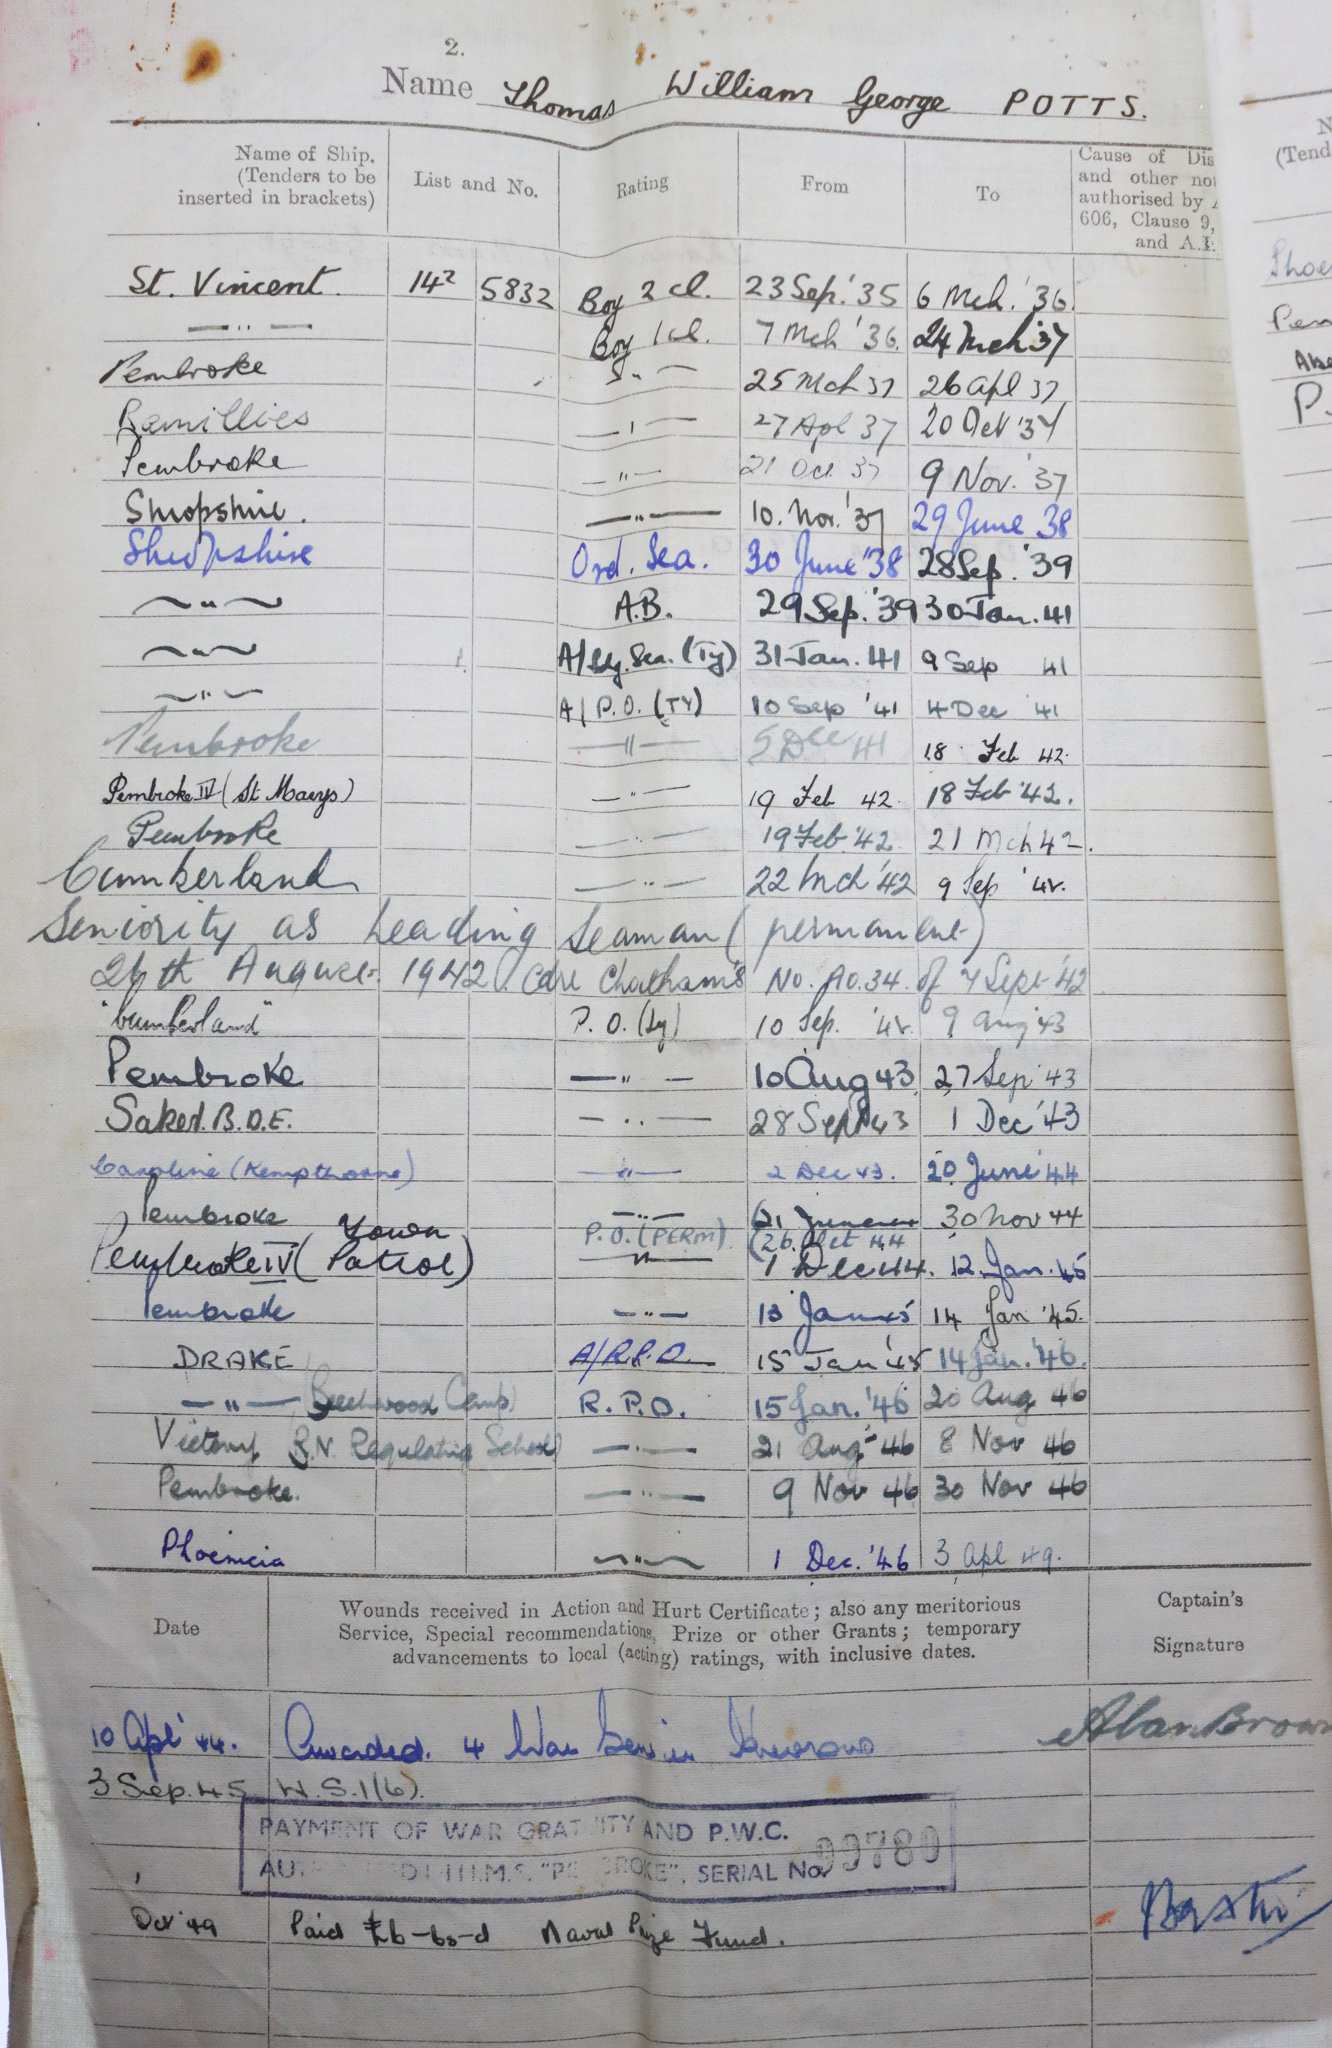 2.
Name Thomas William George POTTS.
Name of Ship. (Tenders to be inserted in brackets) List and No. Rating From To Cause of Dis and other not authorised by 606, Clause 9, and A.I.
St. Vincent 14² 5832 Boy 2 cl. 23 Sep. '35 6 Mch. '36.
— " — Boy 1 cl. 7 Mch '36. 24 Mch '37
Pembroke " — 25 Mch 37 26 Apl 37
Ramillies — " — 27 Apl 37 20 Oct '37
Pembroke — " — 21 Oct 37 9 Nov. '37
Shropshire. — " — 10. Nov. '37 29 June 38
Shropshire Ord. Sea. 30 June '38 28 Sep. '39
~ " ~ A.B. 29 Sep. '39 30 Jan. 41
~ " ~ A/Ldg. Sea. (Ty) 31 Jan. 41 9 Sep 41
~ " ~ A/P.O. (TY) 10 Sep '41 4 Dec '41
Pembroke — " — 5 Dec 41 18 Feb 42.
Pembroke IV (St Marys) — " — 19 Feb 42. 18 Feb '42.
Pembroke — " — 19 Feb. '42. 21 Mch 42.
Cumberland — " — 22 Mch '42 9 Sep '42.
Seniority as Leading Seaman (permanent)
26th August 1942. Chatham's No. of 7 Sept '42
"Cumberland" P.O. (Ty) 10 Sep. '42. 9 Aug '43
Pembroke — " — 10 Aug 43 27 Sep '43
Saker. B.D.E. — " — 28 Sept 43 1 Dec '43
Caroline (Kempthorne) — " — 2 Dec 43. 20 June '44
Pembroke — " — (21 June 44 30 Nov 44
P.O. (PERM) (26. Oct 44
Pembroke IV (Town Patrol) — " — 1 Dec 44. 12 Jan. 45
Pembroke — " — 13 Jan 45 14 Jan '45.
DRAKE A/R.P.O. 15 Jan '45 14 Jan. '46.
— " — (Beechwood Camp) R.P.O. 15 Jan. '46 20 Aug 46
Victory (R.N. Regulating School) — " — 21 Aug 46 8 Nov 46
Pembroke. — " — 9 Nov 46 30 Nov 46
Phoenicia ~ " ~ 1 Dec. '46 3 Apl 49.
Date Wounds received in Action and Hurt Certificate; also any meritorious Service, Special recommendations, Prize or other Grants; temporary advancements to local (acting) ratings, with inclusive dates. Captain's Signature
10 Apl '44. Awarded. 4 War Service Chevrons Alan Brown
3 Sep. 45 W.S.1(b).
PAYMENT OF WAR GRATUITY AND P.W.C.
H.M.S. "PEMBROKE", SERIAL No. 99780
Oct '49 Paid £6-6s-d Naval Prize Fund.
N
(Tend
Phoe
Pem
P.